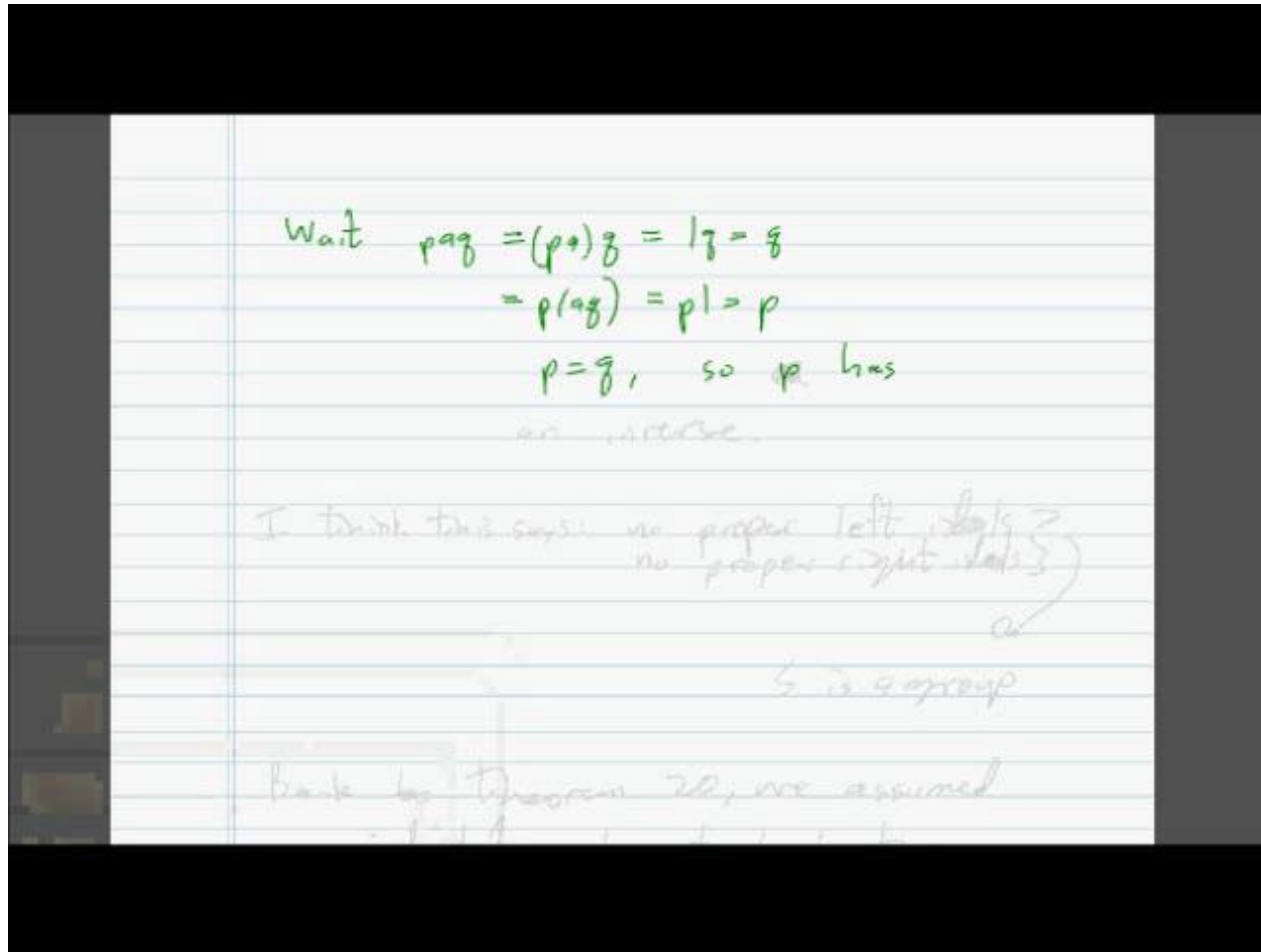 Wait paq = (pa)q = 1q = q
= p(aq) = p1 = p
p = q, so p has
an inverse.
I think this says: no proper left ideals
no proper right ideals
S is a group
Back to Theorem 20, we assumed